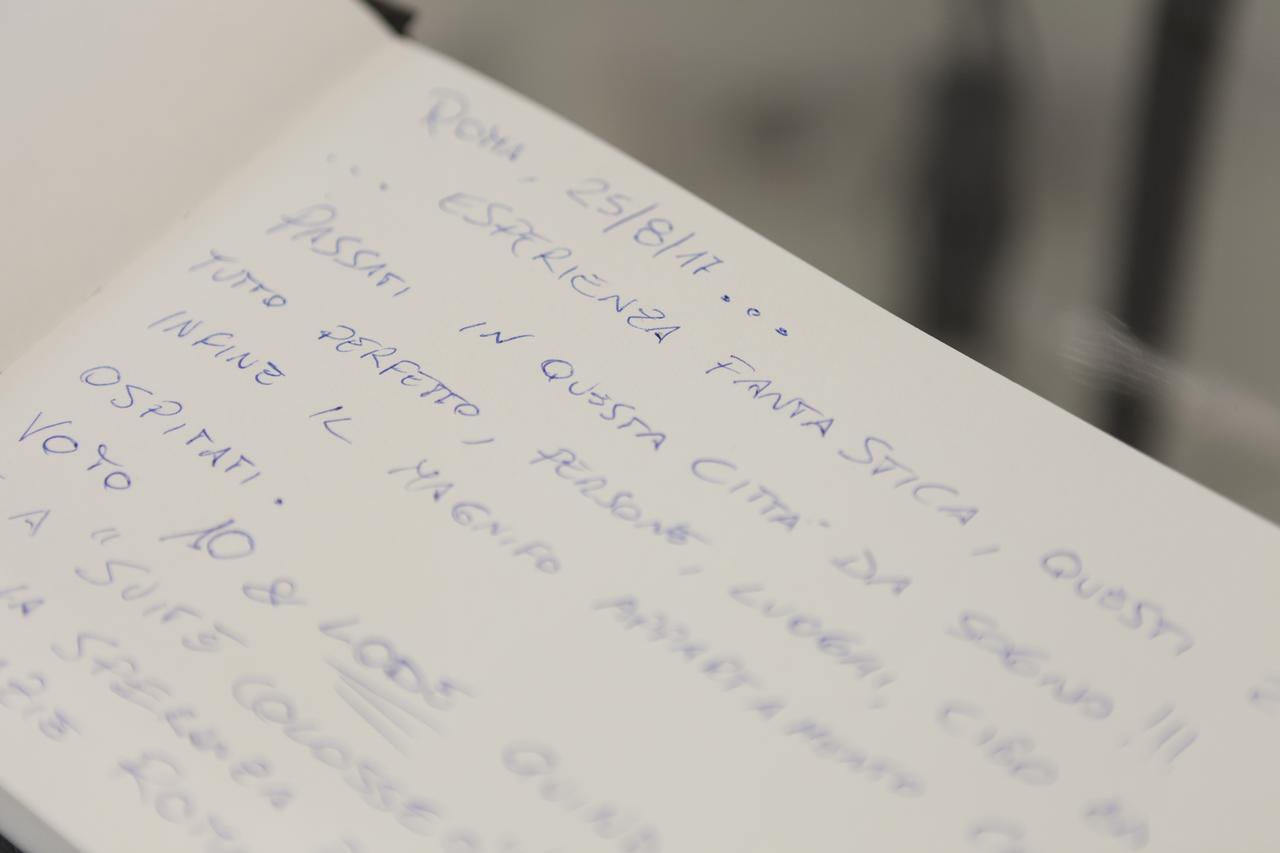 ROMA, 25/8/17 ...
... ESPERIENZA FANTASTICA, QUESTI
PASSATI IN QUESTA CITTA' DA SOGNO !!!
TUTTO PERFETTO, PERSONE, LUOGHI, CIBO
INFINE IL MAGNIFO APPARTAMENTO
OSPITATI.
VOTO 10 & LODE
A "SUITE COLOSSEO
LA SPERANZA